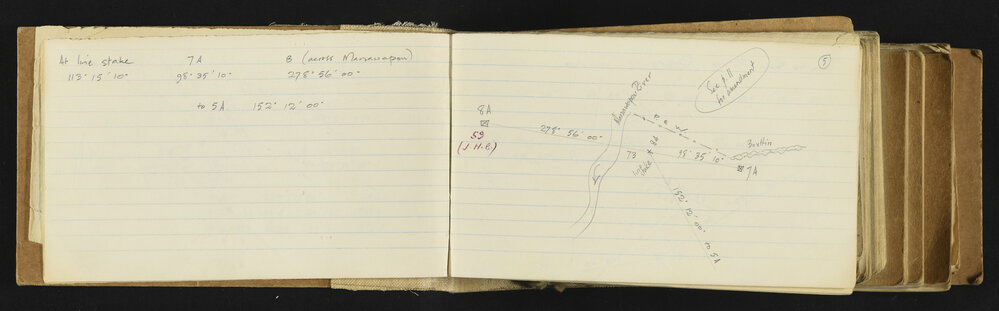 At line stake 7A 8 (across Manawapou)
113° 15' 10" 98° 35' 10" 278° 56' 00"
to 5A 152° 12' 00"
5
See p 11
for amendment
Manawapou River
8A
59
(J.H.E.)
278° 56' 00"
73
line
stake
98° 35' 10"
7A
152° 12' 00" to 5A